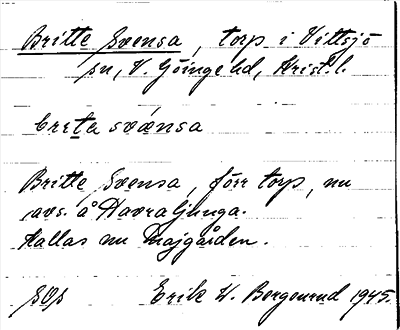 Britte Svensa, torp i Vittsjö
sn, V. Göinge hd, Krist. l.
brita svänsa
Britte Svensa, förr torp, nu
avs. å Havraljunga.
Kallas nu Majgården.
Erik W. Bergenrud 1945.